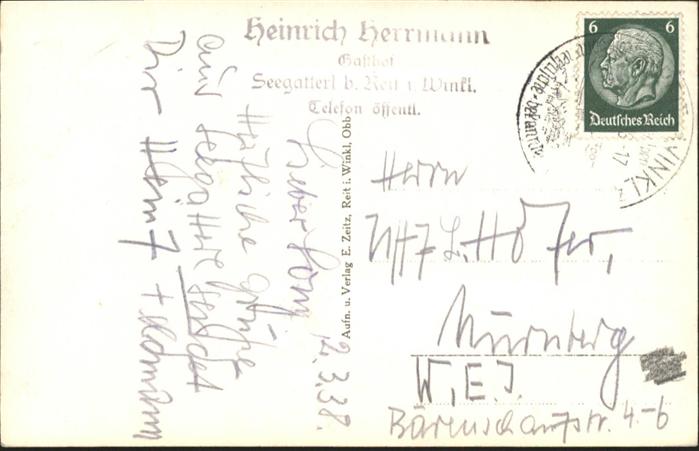 Heinrich Herrmann
Gasthof
Seegatterl b. Reit i. Winkl.
Telefon öffentl.
6 6
Deutsches Reich
WINKL
Aufn. u. Verlag E. Zeitz, Reit i. Winkl, Obb
12.3.38.
Lieber
Herzliche Grüße
aus Seegatterl sendet
Dir Heinz +
Herrn
Höfer,
Nürnberg
W.E.J.
Bärenschanzstr. 4-6